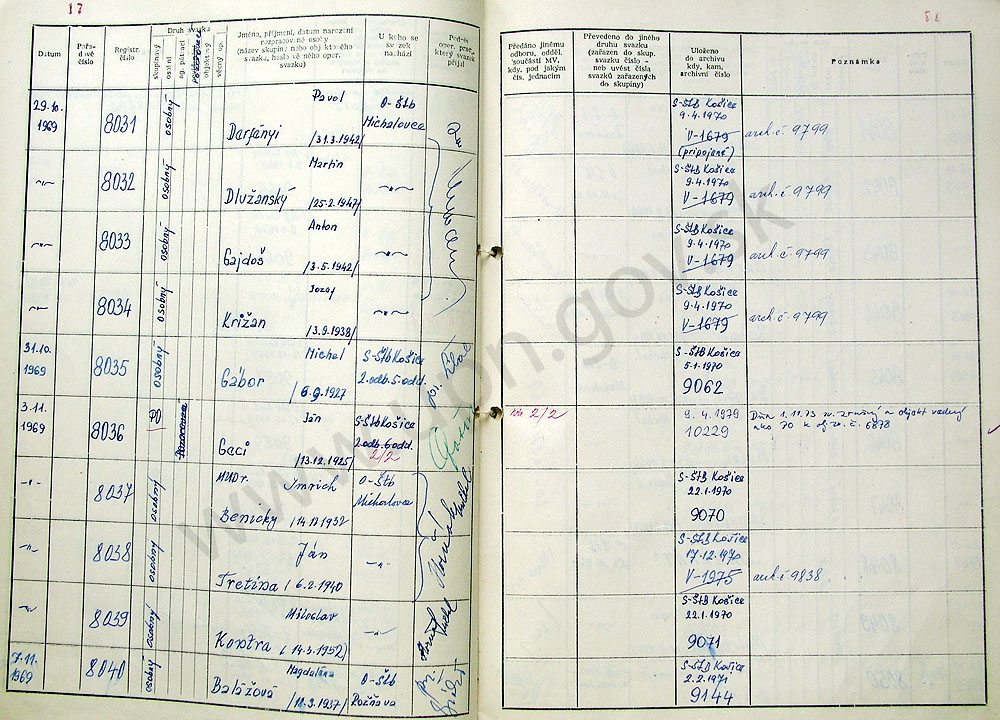 17
Datum
Pořadové číslo
Registr. číslo
Druh svazku
skupinový
osobní
objektový
Jméno, příjmení, datum narození
rozpracované osoby
(název skupiny nebo objektového
svazku, heslo věcného oper.
svazku)
U koho se
svazek
nachází
Podpis
oper. prac.,
který svazek
přijal
Předáno jinému
odboru, odděl.
součásti MV,
kdy, pod jakým
čís. jednacím
Převedeno do jiného
druhu svazku
(zařazen do skup.
svazku číslo -
neb uvést čísla
svazků zařazených
do skupiny)
Uloženo
do archivu
kdy, kam,
archivní číslo
Poznámka
29.10.
1969
8031
osobný
Pavol
Darfányi
/31.3.1942/
O-Štb
Michalovce
S-ŠtB Košice
9.4.1970
V-1679
(pripojené)
arch. č. 9799
-"-
8032
osobný
Martin
Dlužanský
/25.2.1947/
-"-
S-ŠtB Košice
9.4.1970
V-1679
arch. č. 9799
-"-
8033
osobný
Anton
Gajdoš
/3.5.1942/
-"-
S-ŠtB Košice
9.4.1970
V-1679
arch. č. 9799
-"-
8034
osobný
Jozef
Križan
/3.9.1938/
-"-
S-ŠtB Košice
9.4.1970
V-1679
arch. č. 9799
31.10.
1969
8035
osobný
Michal
Gábor
/6.9.1927
S-Štb Košice
2.odb.5.odd.
S-ŠtB Košice
5.1.1970
9062
3.11.
1969
8036
PO
Ján
Gaci
/13.12.1925/
S-Štb Košice
2.odb.6.odd.
2/2
2/2
9.4.1979
10229
Dňa 1.11.73 zv. zrušený a objekt vedený
ako PO k obj. zv. č. 6878
-"-
8037
osobný
MUDr. Imrich
Benický
O-Štb
Michalovce
S-ŠtB Košice
22.1.1970
9070
-"-
8038
osobný
Ján
Tretina / 6.2.1940
-"-
S-ŠtB Košice
17.12.1970
V-1975
arch. č 9838
-"-
8039
osobný
Miloslav
Kontra /14.3.1952/
-"-
S-ŠtB Košice
22.1.1970
9071
7.11.
1969
8040
osobný
Magdaléna
Balážová
O-Štb
Rožňava
S-ŠtB Košice
2.2.1971
9144
www.upn.gov.sk